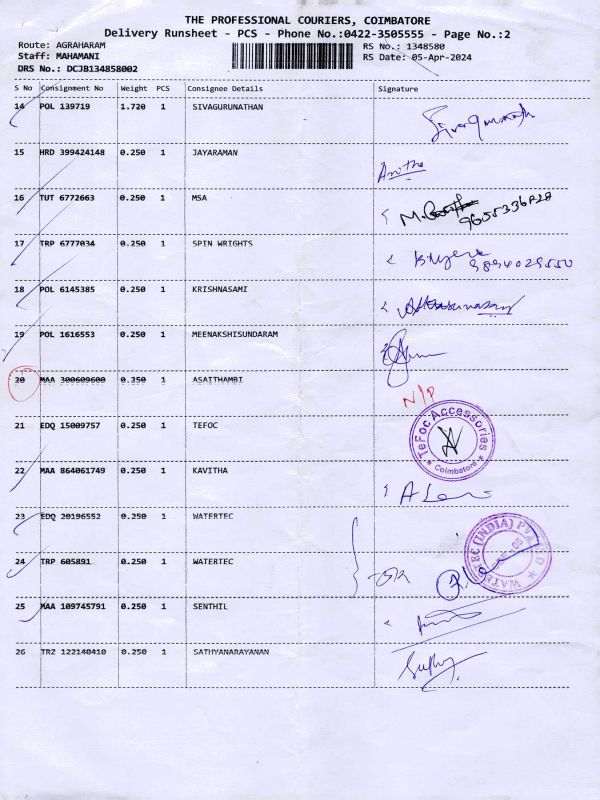 THE PROFESSIONAL COURIERS, COIMBATORE
Delivery Runsheet - PCS - Phone No.:0422-3505555 - Page No.:2
Route: AGRAHARAM
RS No.: 1348580
Staff: MAHAMANI
RS Date: 05-Apr-2024
DRS No.: DCJB134858002
S No Consignment No Weight PCS Consignee Details Signature
14 POL 139719 1.720 1 SIVAGURUNATHAN
15 HRD 399424148 0.250 1 JAYARAMAN
16 TUT 6772663 0.250 1 MSA
17 TRP 6777034 0.250 1 SPIN WRIGHTS
18 POL 6145385 0.250 1 KRISHNASAMI
19 POL 1616553 0.250 1 MEENAKSHISUNDARAM
20 MAA 300609600 0.250 1 ASAITHAMBI
N/P
21 EDQ 15009757 0.250 1 TEFOC
TeFoc Accessories
Coimbatore
22 MAA 864061749 0.250 1 KAVITHA
23 EDQ 20196552 0.250 1 WATERTEC
24 TRP 605891 0.250 1 WATERTEC
WATERTEC (INDIA)
25 MAA 109745791 0.250 1 SENTHIL
26 TRZ 122140410 0.250 1 SATHYANARAYANAN